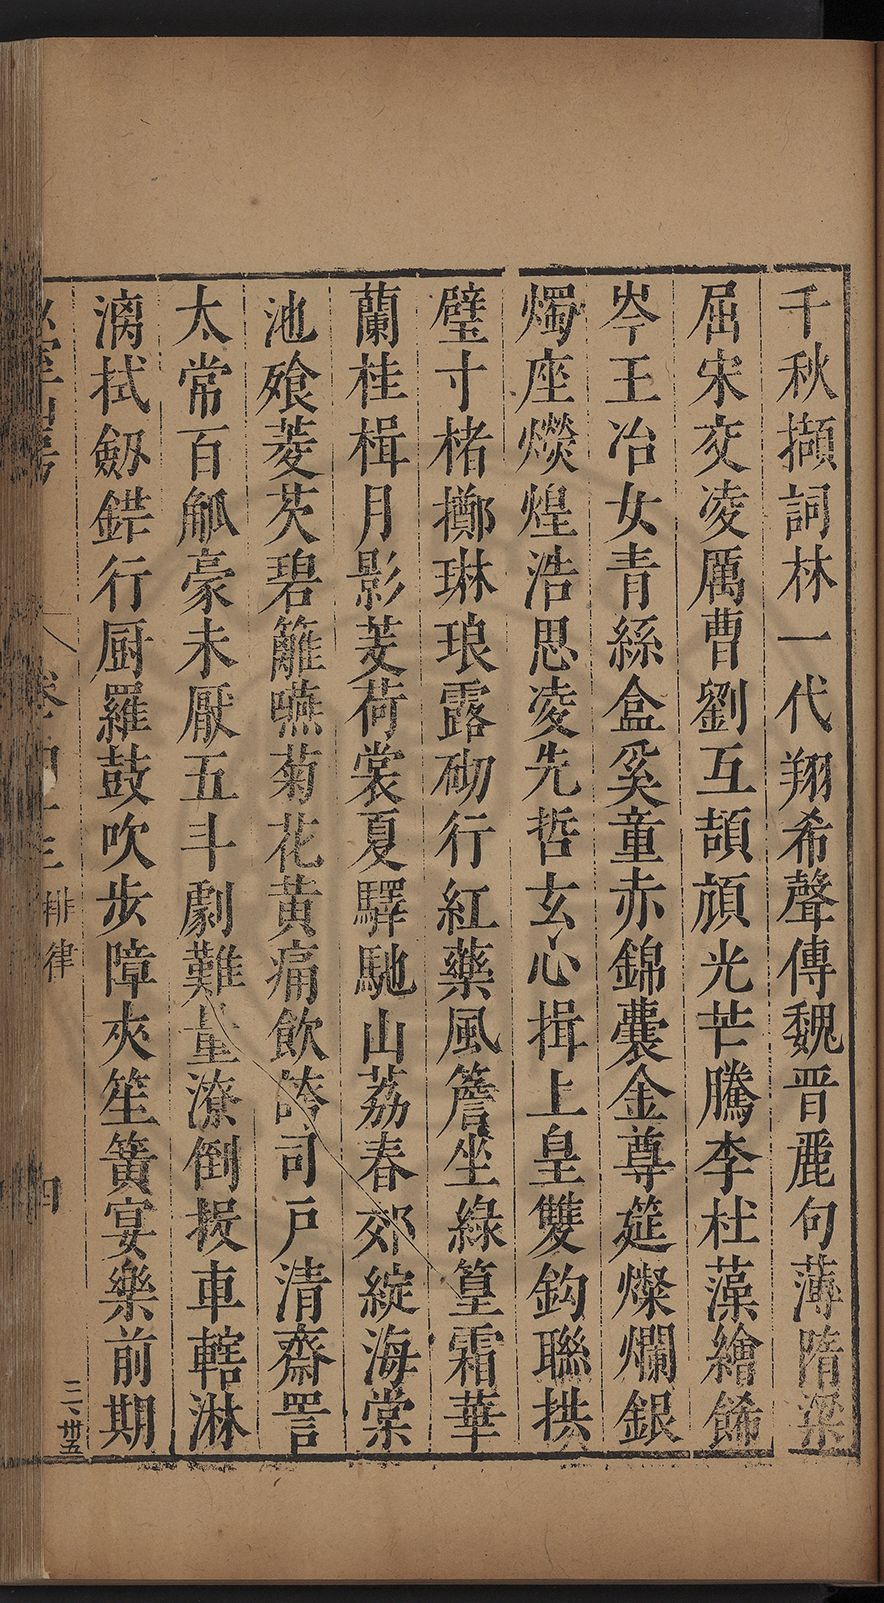 千秋擷詞林一代翔希聲傳魏晉麗句薄隋梁
屈宋交凌厲曹劉互頡頏光芒騰李杜藻繪餙
岑王冶女青絲盒奚童赤錦囊金尊筵燦爛銀
燭座熒煌浩思凌先哲玄心揖上皇雙鈎聯拱
璧寸楮擲琳琅露砌行紅藥風簷坐綠篁霜華
蘭桂楫月影芰荷裳夏驛馳山荔春郊綻海棠
池飱菱芡碧籬嚥菊花黃痛飲誇司戶清齋詈
太常百觚豪未厭五斗劇難量潦倒投車轄淋
漓拭劔鋩行厨羅鼓吹步障夾笙簧宴樂前期
卷四十三 排律 四
三、卅五